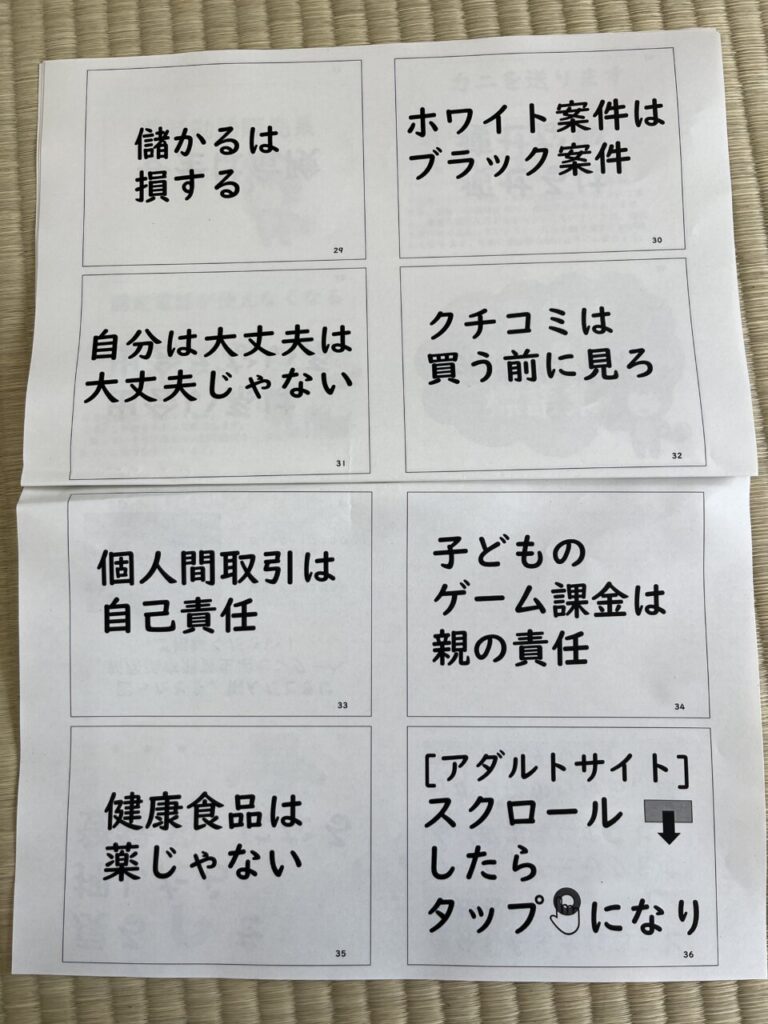 儲かるは
損する
29
ホワイト案件は
ブラック案件
30
自分は大丈夫は
大丈夫じゃない
31
クチコミは
買う前に見ろ
32
個人間取引は
自己責任
33
子どもの
ゲーム課金は
親の責任
34
健康食品は
薬じゃない
35
[アダルトサイト]
スクロール
したら
タップになり
36